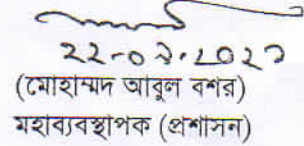 ২২-০৯-২০২১
(মোহাম্মদ আবুল বশর)
মহাব্যবস্থাপক (প্রশাসন)